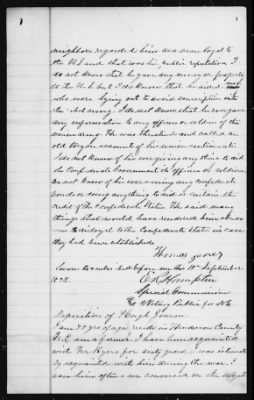 neighbors regarded him as a man loyal to
the U.S. and that was his public reputation. I
do not know that he gave any money or property
to the U.S. but I do know that he aided men
who were lying out to avoid conscription into
the rebel army. I do not know that he ever gave
any information to any officer or soldier of the
union army. He was threatened and called an
old tory on account of his union sentiments.
I do not know of his ever giving any thing to aid
the Confederate Government its officers or soldiers.
Do not know of his ever owning any confederate
bonds or doing anything to aid or sustain the
credit of the Confederate States. He said many
things that would have rendered him
disloyal to the Confederate States in case
they had been established
Thomas
Sworn to & subscribed before me this 18th September
187
Special Commissioner
& Notary Public for N.C.
Deposition of Hugh
I am 77 yrs of age, reside in Henderson County
N.C. am a farmer. I have been acquainted
with Mr. for sixty years. I was intimately
acquainted with him during the war. I
saw him often & we conversed on the subject